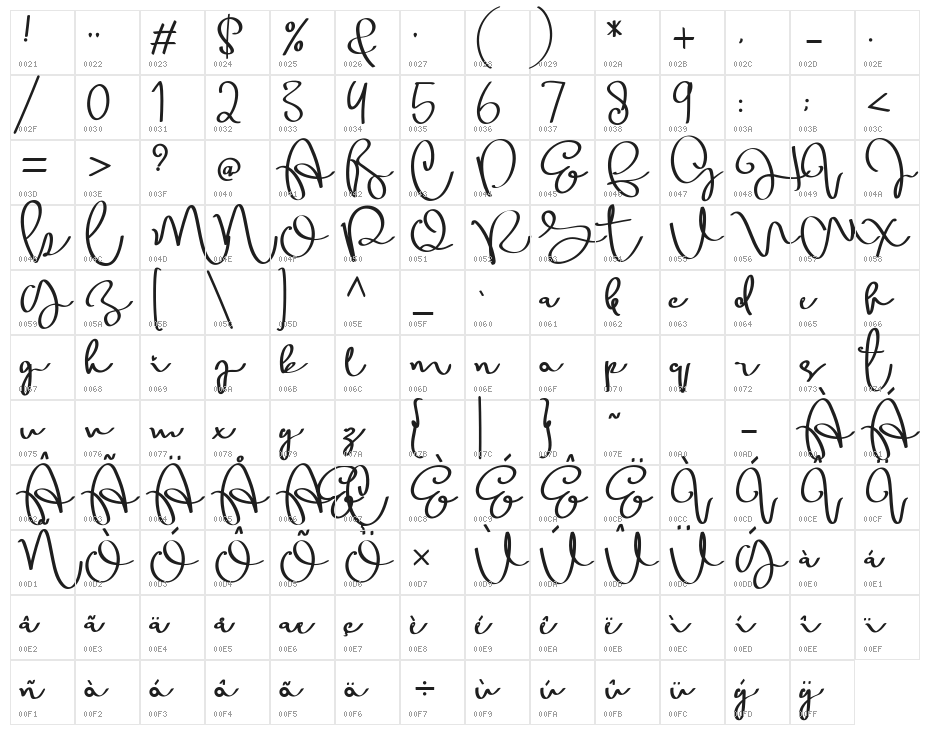 ! " # $ % & ' ( ) * + , - .
0021 0022 0023 0024 0025 0026 0027 0028 0029 002A 002B 002C 002D 002E
/ 0 1 2 3 4 5 6 7 8 9 : ; <
002F 0030 0031 0032 0033 0034 0035 0036 0037 0038 0039 003A 003B 003C
= > ? @ A B C D E F G H I J
003D 003E 003F 0040 0041 0042 0043 0044 0045 0046 0047 0048 0049 004A
K L M N O P Q R S T U V W X
004B 004C 004D 004E 004F 0050 0051 0052 0053 0054 0055 0056 0057 0058
Y Z [ \ ] ^ _ ` a b c d e f
0059 005A 005B 005C 005D 005E 005F 0060 0061 0062 0063 0064 0065 0066
g h i j k l m n o p q r s t
0067 0068 0069 006A 006B 006C 006D 006E 006F 0070 0071 0072 0073 0074
u v w x y z { | } ~ - À Á
0075 0076 0077 0078 0079 007A 007B 007C 007D 007E 00A0 00AD 00C0 00C1
Â Ã Ä Å Æ Ç È É Ê Ë Ì Í Î Ï
00C2 00C3 00C4 00C5 00C6 00C7 00C8 00C9 00CA 00CB 00CC 00CD 00CE 00CF
Ñ Ò Ó Ô Õ Ö × Ù Ú Û Ü Ý à á
00D1 00D2 00D3 00D4 00D5 00D6 00D7 00D9 00DA 00DB 00DC 00DD 00E0 00E1
â ã ä å æ ç è é ê ë ì í î ï
00E2 00E3 00E4 00E5 00E6 00E7 00E8 00E9 00EA 00EB 00EC 00ED 00EE 00EF
ñ ò ó ô õ ö ÷ ù ú û ü ý ÿ
00F1 00F2 00F3 00F4 00F5 00F6 00F7 00F9 00FA 00FB 00FC 00FD 00FF